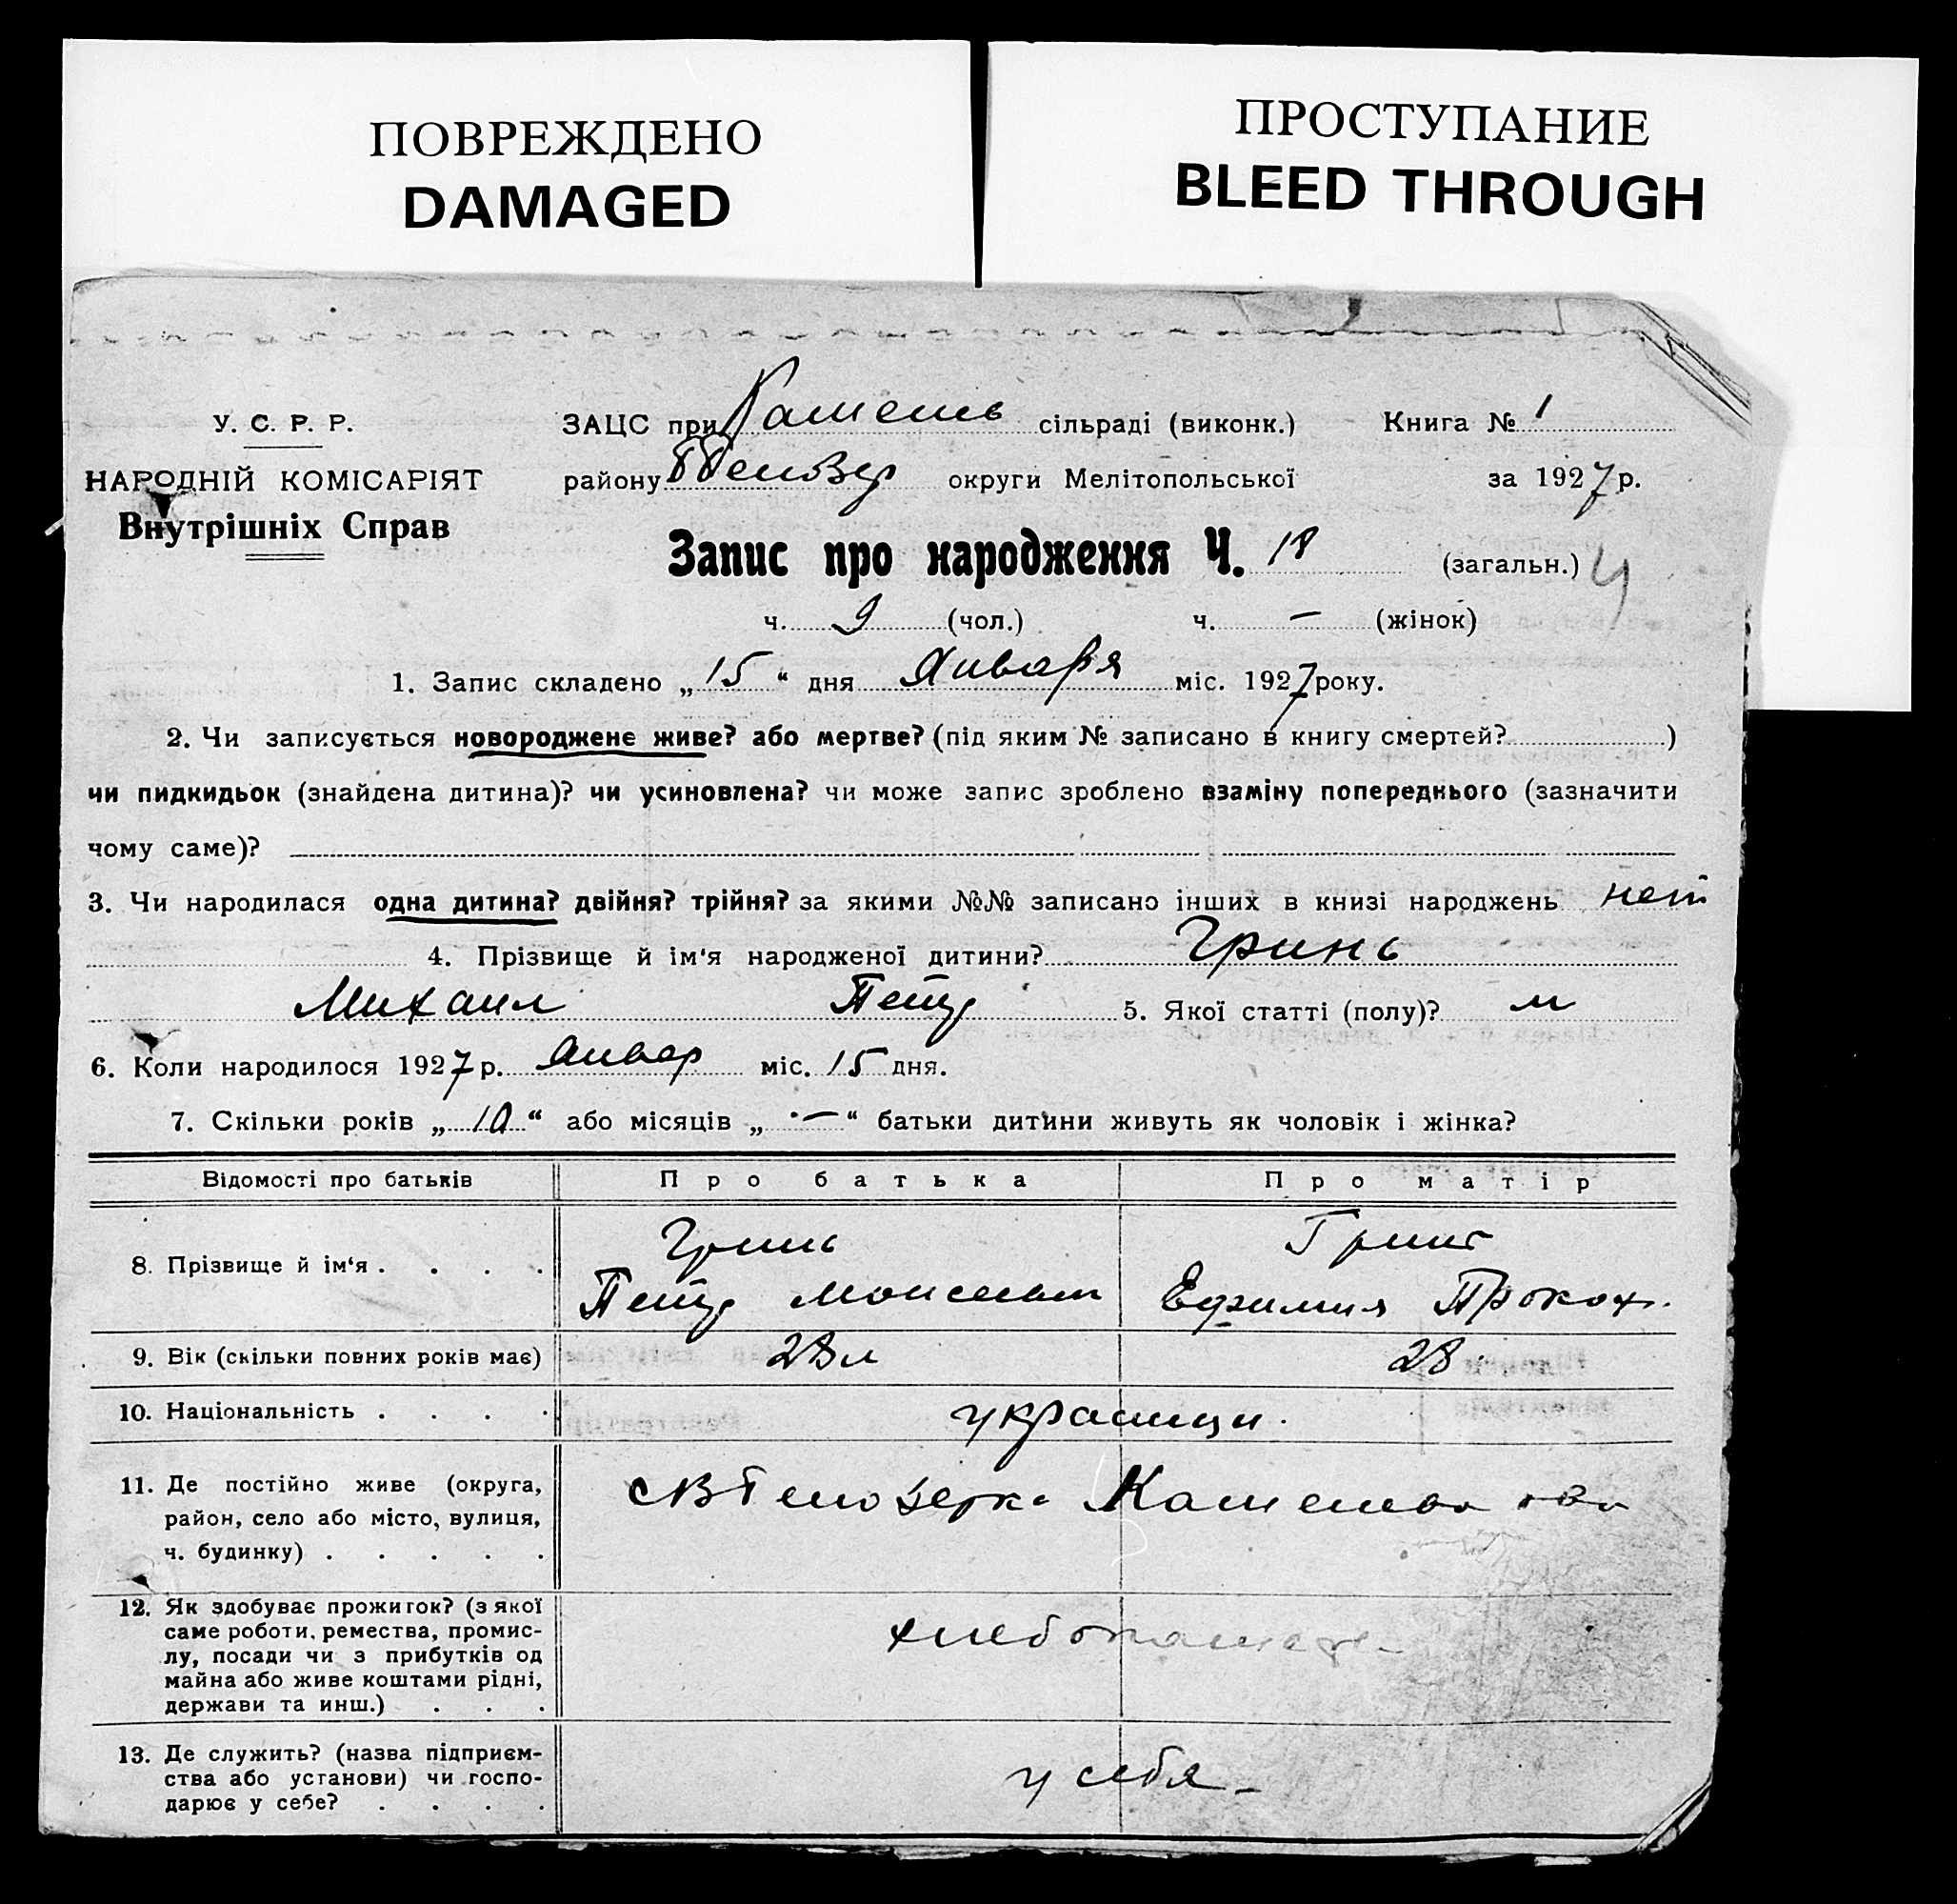 ПОВРЕЖДЕНО
DAMAGED
ПРОСТУПАНИЕ
BLEED THROUGH
У. С. Р. Р.
НАРОДНІЙ КОМІСАРІЯТ
Внутрішніх Справ
ЗАЦС при Камень сільраді (виконк.) Книга № 1
району округи Мелітопольської за 1927 р.
Запис про народження Ч. 18 (загальн.) 4
ч. 9 (чол.) ч. — (жінок)
1. Запис складено „15“ дня Января міс. 1927 року.
2. Чи записується новороджене живе? або мертве? (під яким № записано в книгу смертей? )
чи пидкидьок (знайдена дитина)? чи усиновлена? чи може запис зроблено взаміну попереднього (зазначити
чому саме)?
3. Чи народилася одна дитина? двійня? трійня? за якими №№ записано інших в книзі народжень нет
4. Прізвище й ім‘я народженої дитини? Гринь
Михаил Петр 5. Якої статті (полу)? м
6. Коли народилося 1927 р. Январ міс. 15 дня.
7. Скільки років „10“ або місяців „—“ батьки дитини живуть як чоловік і жінка?
Відомості про батьків Про батька Про матір
8. Прізвище й ім‘я . . . . Гринь Гринь
Петр Моисеевич Ефимия Прокоф.
9. Вік (скільки повних років має) 28 л 28
10. Національність . . . . украинци.
11. Де постійно живе (округа,
район, село або місто, вулиця,
ч. будинку) . . . . .
12. Як здобуває прожиток? (з якої
саме роботи, ремества, промис-
лу, посади чи з прибутків од
майна або живе коштами рідні,
держави та инш.) . . .
13. Де служить? (назва підприєм-
ства або установи) чи госпо-
дарює у себе? . . . .
у себя —